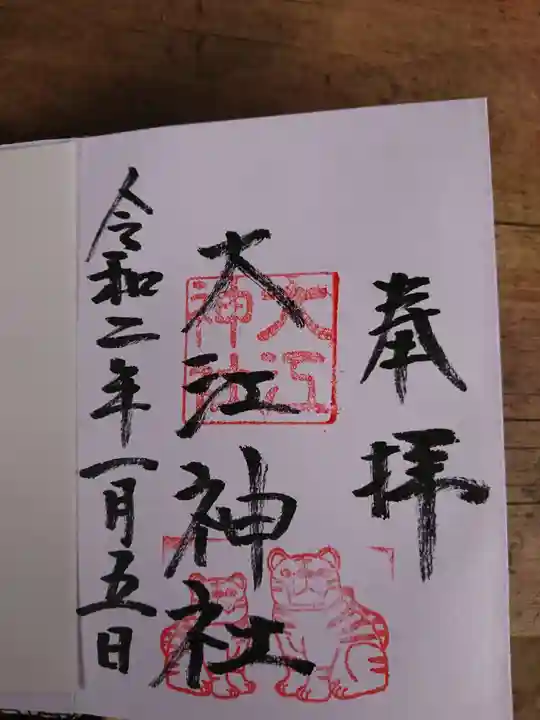 奉拝
大江神社
大江神社
令和二年一月五日